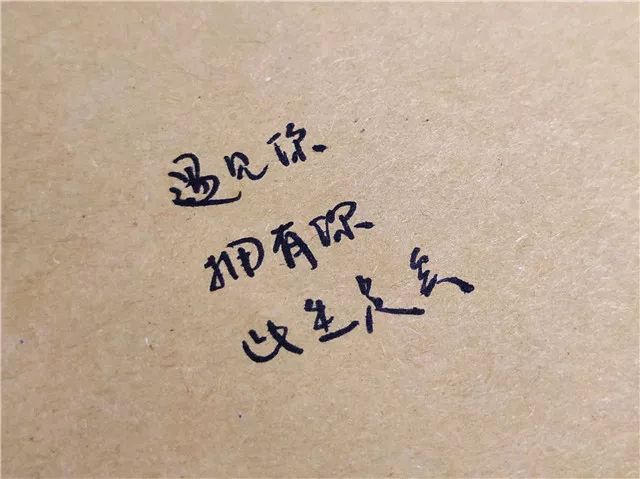 遇见你
拥有你
此生足矣